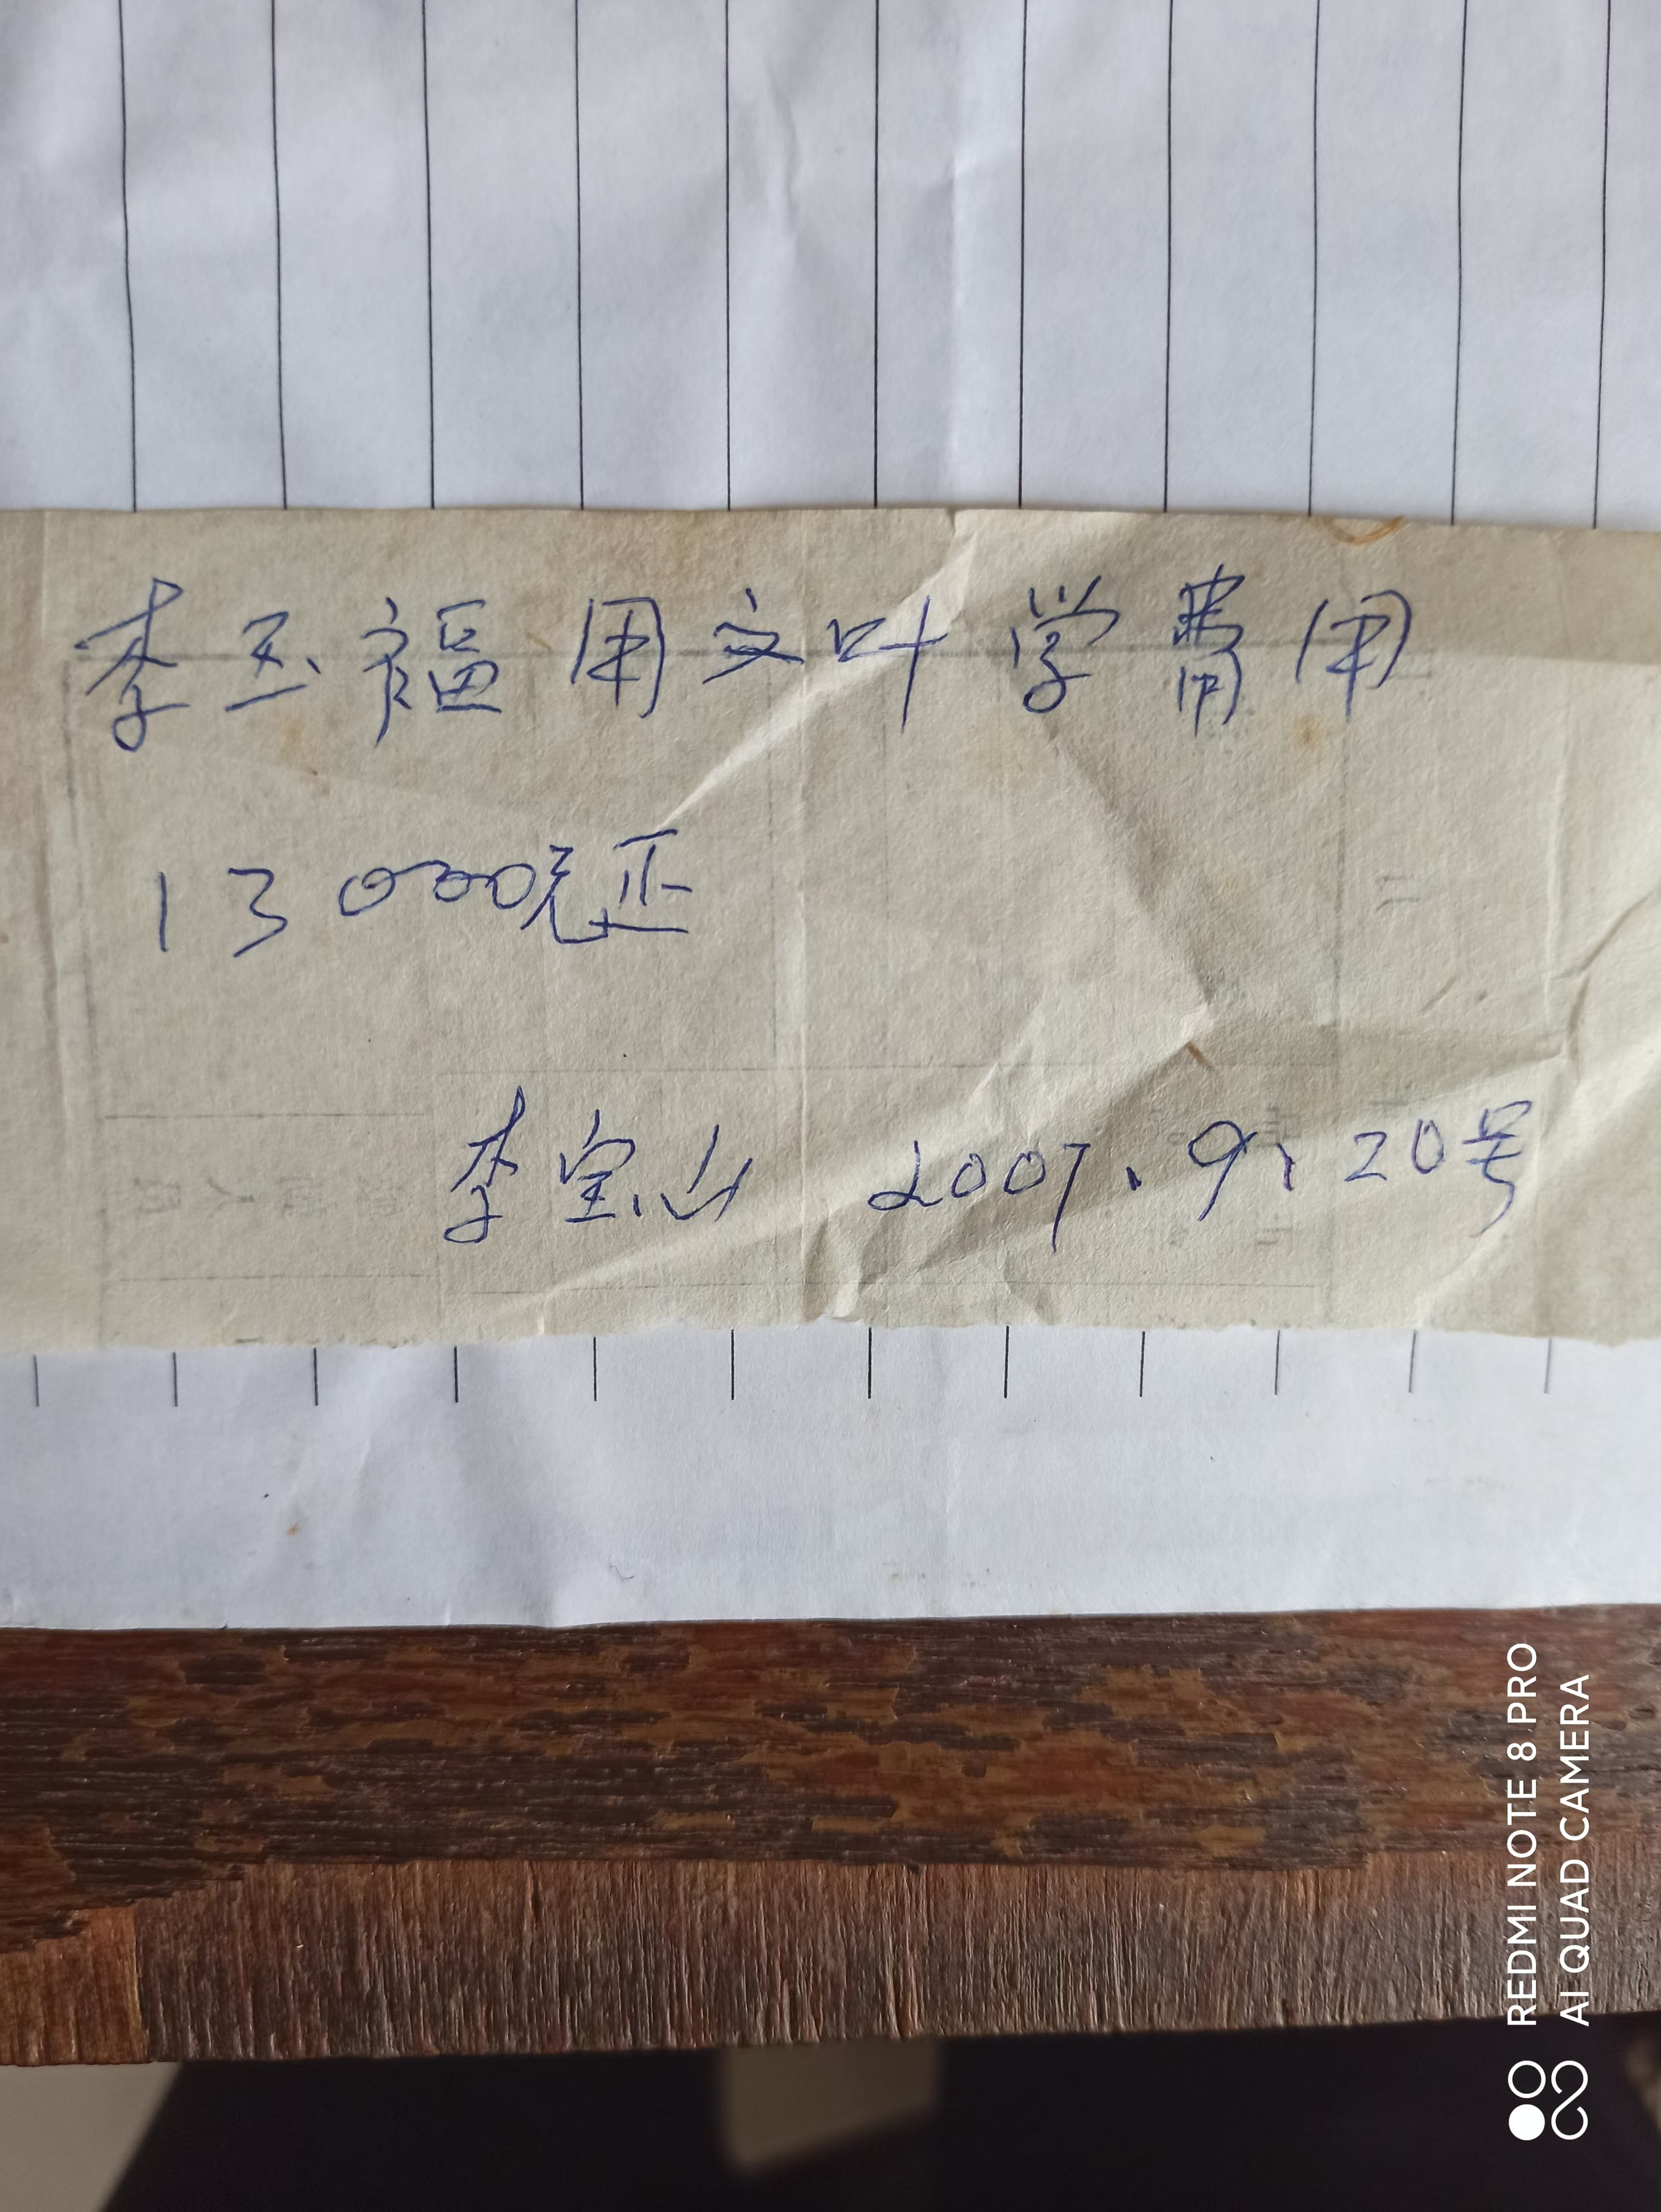 李玉福用文叶学费用
13000元正
李宝山 2007、9、20号
REDMI NOTE 8 PRO
AI QUAD CAMERA